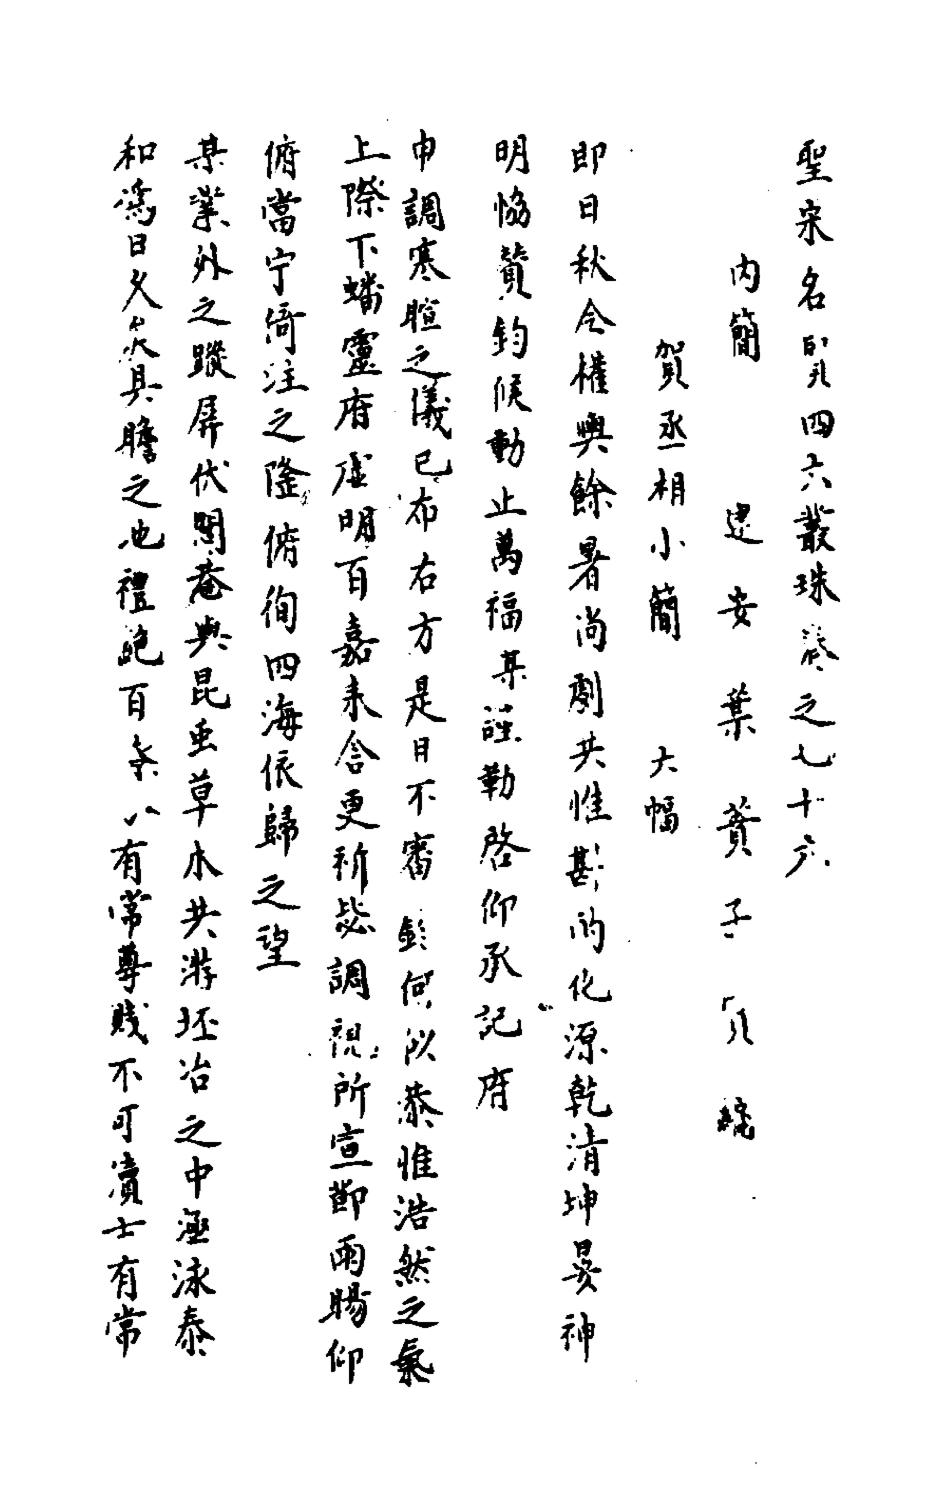 聖宋名賢四六叢珠卷之七十六
內簡　建安葉蕡子實編
賀丞相小簡　大幅
即日秋令權輿餘暑尚劇共惟斟酌化源乾清坤晏神
明恊贊鈞候動止萬福某謹勒啓仰承記府
申調寒暄之儀已布右方是日不審鈞何似恭惟浩然之氣
上際下蟠靈府虛明百嘉來含更祈毖調視所宣節雨暘仰
俯當宁倚注之隆俯徇四海依歸之望
某業外之蹤屏伏閭菴與昆虫草木共游坯冶之中涵泳泰
和為日久矣具瞻之地禮絕百寮有常尊賤不可瀆士有常